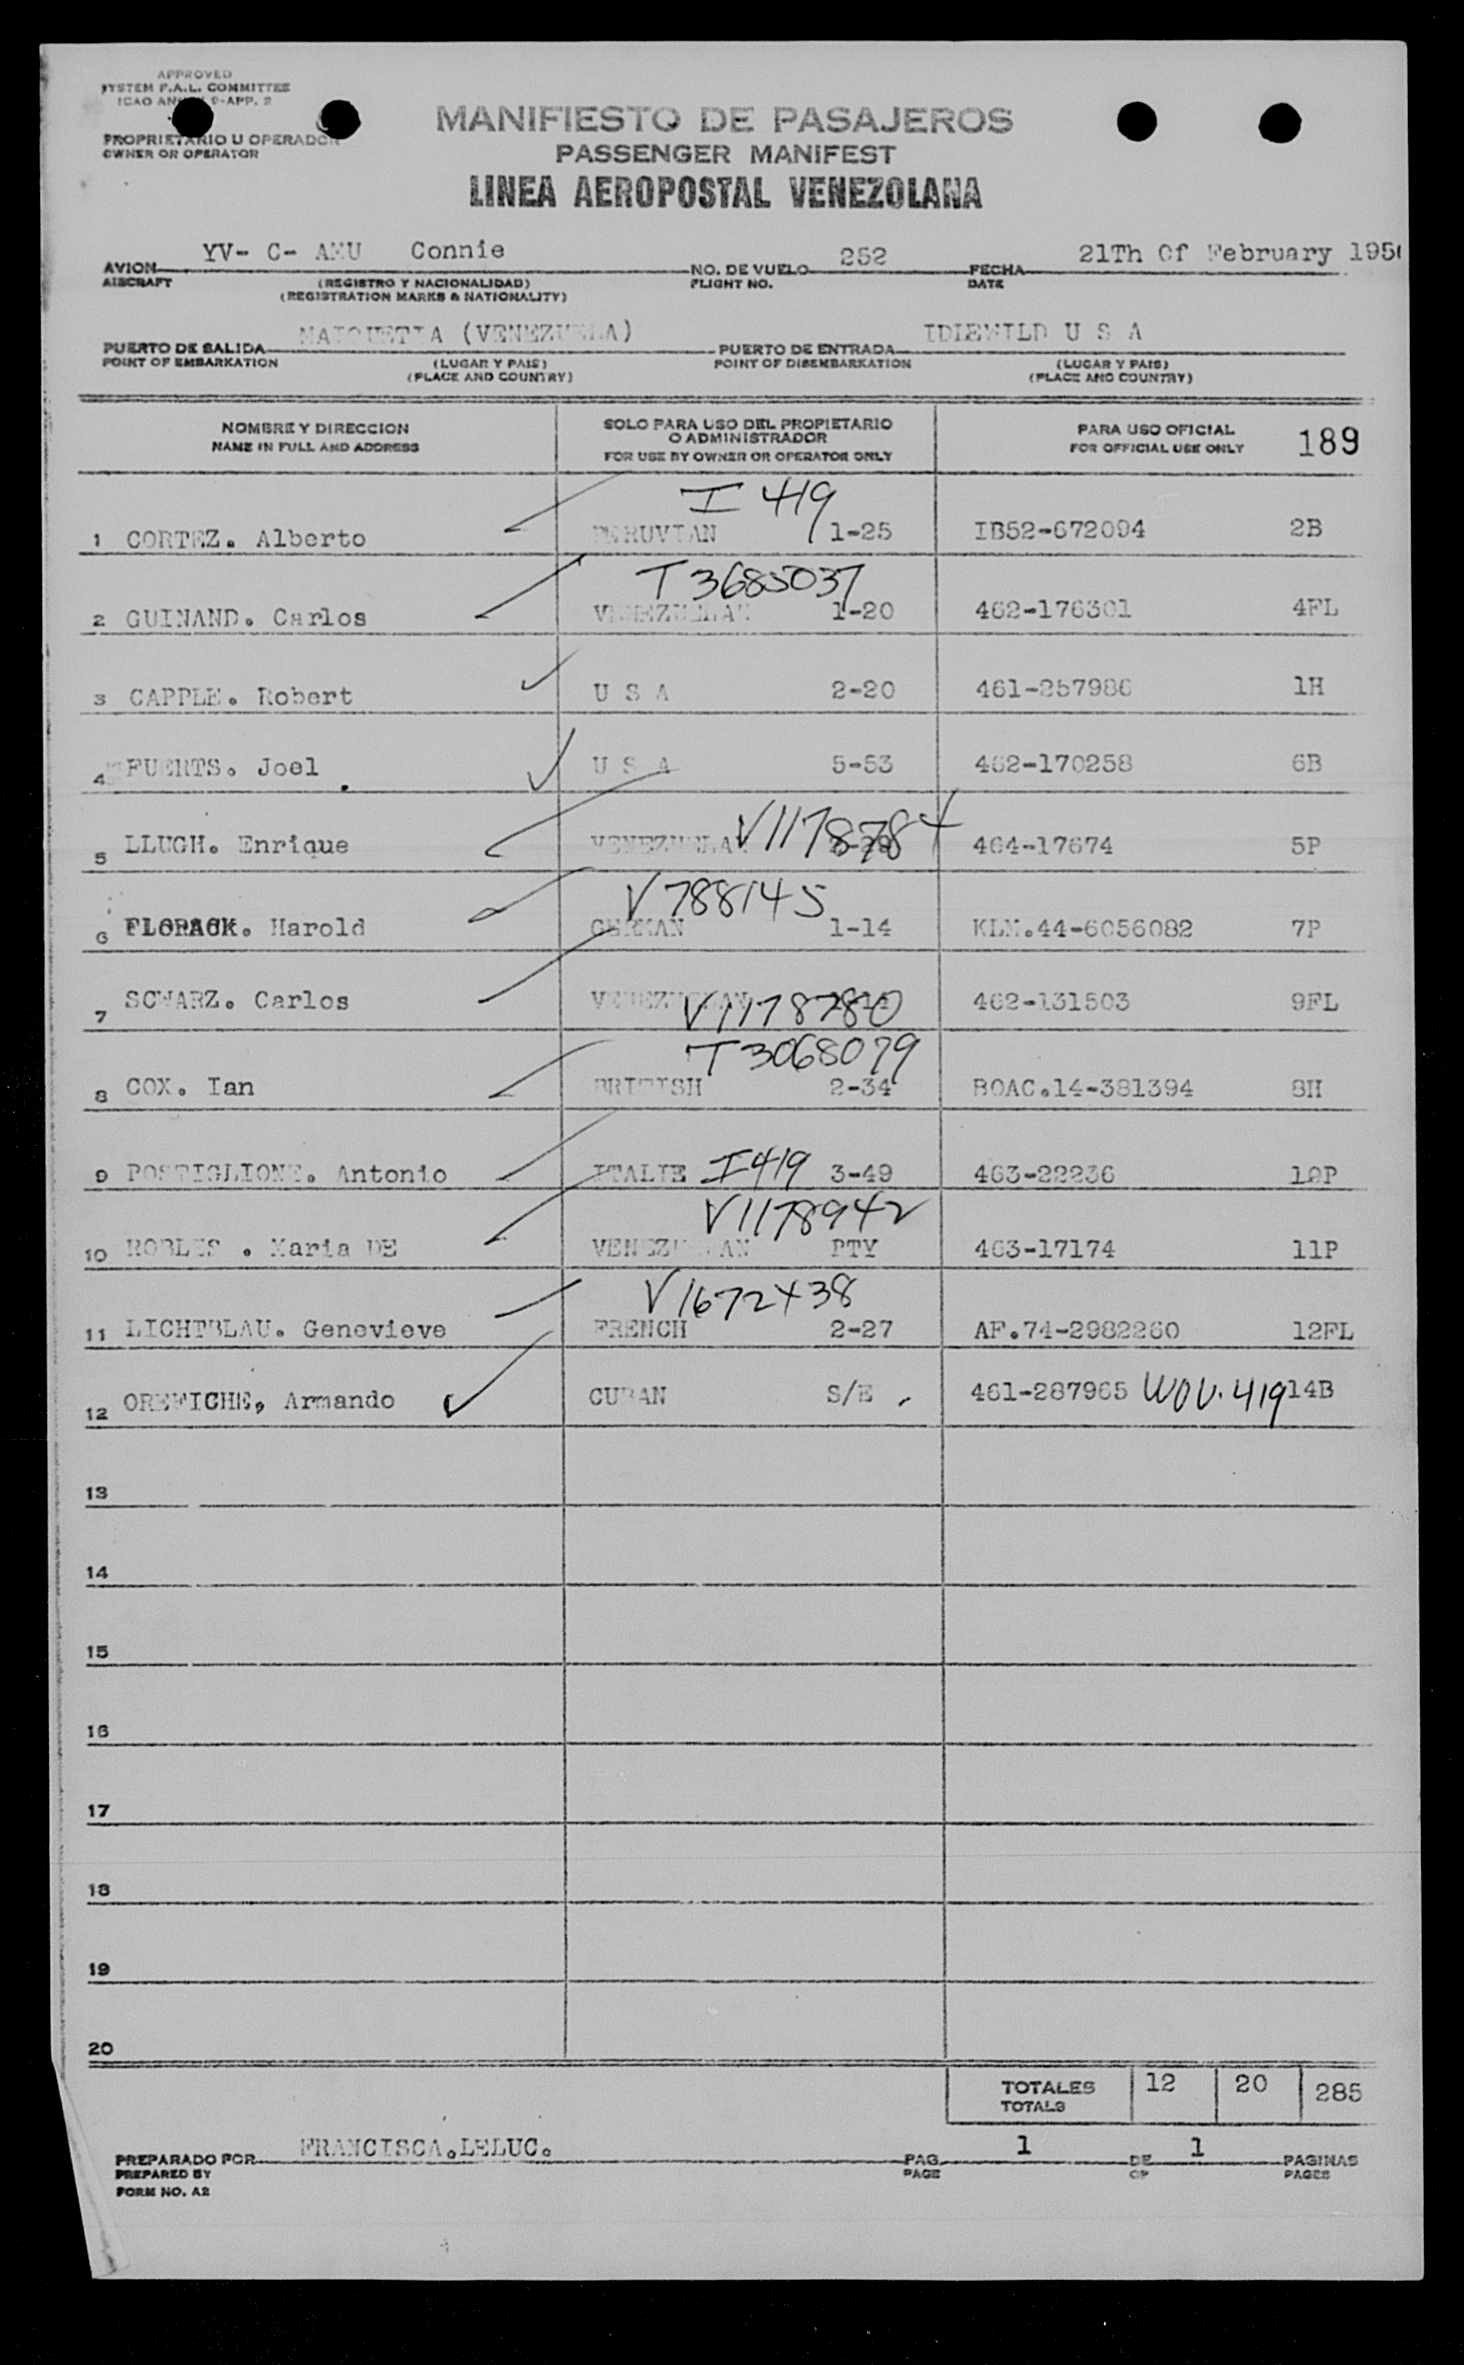 APPROVED
SYSTEM F.A.L. COMMITTEE
ICAO ANNEX 9-APP. 2
PROPRIETARIO U OPERADOR
OWNER OR OPERATOR
MANIFIESTO DE PASAJEROS
PASSENGER MANIFEST
LINEA AEROPOSTAL VENEZOLANA
AVION YV- C- AMU Connie NO. DE VUELO 252 FECHA 21Th Of February 195
AIRCRAFT (REGISTRO Y NACIONALIDAD) FLIGHT NO. DATE
(REGISTRATION MARKS & NATIONALITY)
PUERTO DE SALIDA MAIQUETIA (VENEZUELA) PUERTO DE ENTRADA IDLEWILD U S A
POINT OF EMBARKATION (LUGAR Y PAIS) POINT OF DISEMBARKATION (LUGAR Y PAIS)
(PLACE AND COUNTRY) (PLACE AND COUNTRY)
NOMBRE Y DIRECCION SOLO PARA USO DEL PROPIETARIO PARA USO OFICIAL 189
O ADMINISTRADOR
NAME IN FULL AND ADDRESS FOR USE BY OWNER OR OPERATOR ONLY FOR OFFICIAL USE ONLY
I 419
1 CORTEZ. Alberto PERUVIAN 1-25 IB52-672094 2B
T 3685037
2 GUINAND. Carlos VENEZUELAN 1-20 462-176301 4FL
3 CAPPLE. Robert U S A 2-20 461-257986 1H
4 FUERTS. Joel U S A 5-53 462-170258 6B
V1178784
5 LLUCH. Enrique VENEZUELAN 464-17674 5P
V788145
6 FLORACK. Harold GERMAN 1-14 KLM.44-6056082 7P
7 SCWARZ. Carlos VENEZUELAN V1178780 462-131503 9FL
T3068079
8 COX. Ian BRITISH 2-34 BOAC.14-381394 8H
9 POSTIGLIONE. Antonio ITALIE I419 3-49 463-22236 10P
V1178942
10 ROBLES . Maria DE VENEZUELAN PTY 463-17174 11P
V1672438
11 LICHTBLAU. Genevieve FRENCH 2-27 AF.74-2982260 12FL
12 OREFICHE, Armando CUBAN S/E 461-287965 WOV.419 14B
13
14
15
16
17
18
19
20
TOTALES 12 20 285
TOTALS
PREPARADO POR FRANCISCA.LELUC. PAG. 1 DE 1 PAGINAS
PREPARED BY PAGE OF PAGES
FORM NO. A2